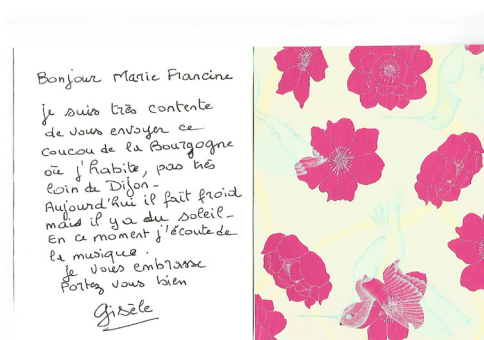 Bonjour Marie Francine
je suis très contente
de vous envoyer ce
coucou de la Bourgogne
où j'habite, pas très
loin de Dijon -
Aujourd'hui il fait froid
mais il y a du soleil -
En ce moment j'écoute de
la musique.
je vous embrasse
Portez vous bien
Gisèle